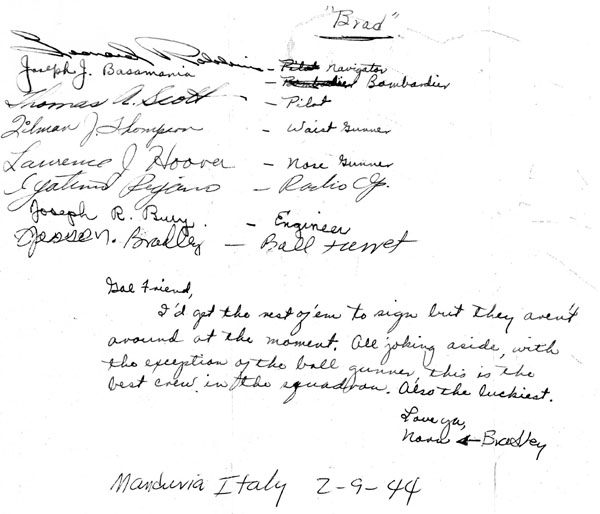 "Brad"
Leonard - Pilot Navigator
Joseph J. Basamania - Bombadier Bombardier
Thomas A. Scott - Pilot
Tilman J. Thompson - Waist Gunner
Lawrence J Hoover - Nose Gunner
- Radio Op.
Joseph R. Bury - Engineer
N. Bradley - Ball turret
Gal Friend,
I'd get the rest of 'em to sign but they aren't
around at the moment. All joking aside, with
the exception of the ball gunner, this is the
best crew in the squadron. Also the luckiest.
Love ya,
Norm ← Bradley
Manduria Italy 2-9-44